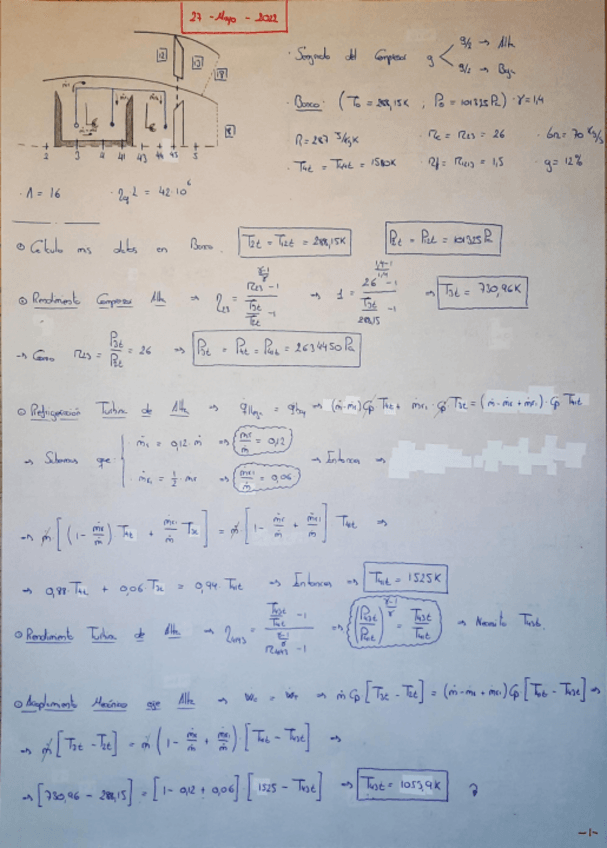 27 - Mayo - 2022
12 13 18
· Sangrado del Compresor g < g/2 → Alta
g/2 → Baja
8
· Banco: (T₀ = 288,15K ; P₀ = 101325 Pa) · γ = 1,4
R = 287 J/kgK · πc = π23 = 26
· T4t = 1580K · πf = π1213 = 1,5 · g = 12%
2 3 4 41 43 44 45 5
· Λ = 16 · L = 42·10⁶
⊙ Cálculo mis datos en Banco. T2t = T12t = 288,15K P2t = P12t = 101325 Pa
⊙ Rendimento Compresor Alta ⇒ η23 = (π23^((γ-1)/γ) - 1)/(T3t/T2t - 1) ⇒ 1 = (26^((1,4-1)/1,4) - 1)/(T3t/288,15 - 1) ⇒ T3t = 730,96K
→ Como π23 = P3t/P2t = 26 ⇒ P3t = P4t = P41t = 2634450 Pa
⊙ Refrigeración Turbina de Alta ⇒ ⇒ (ṁ-ṁr) Cp T4t + ṁr1 · Cp T3t = (ṁ - ṁr + ṁr1) · Cp T41t
→ Sabemos que: { · ṁr = 0,12 · ṁ ⇒ ṁr/ṁ = 0,12
· ṁr1 = 1/2 · ṁr ⇒ ṁr1/ṁ = 0,06 → Entonces ⇒
→ ṁ [(1 - ṁr/ṁ) · T4t + ṁr1/ṁ T3t] = ṁ · [1 - ṁr/ṁ + ṁr1/ṁ] · T41t ⇒
→ 0,88 · T4t + 0,06 T3t = 0,94 · T41t ⇒ Entonces ⇒ T41t = 1525K
⊙ Rendimento Turbina de Alta ⇒ η4143 = (T43t/T41t - 1)/(π4143^((γ-1)/γ) - 1) ⇒ (P43t/P41t)^((γ-1)/γ) = T43t/T41t ⇒ Necesito T43t.
⊙ Acoplamento Mecánico eje Alta ⇒ Wc = WT ⇒ ṁ Cp [T3t - T2t] = (ṁ - ṁr + ṁr1) Cp [T41t - T43t] ⇒
→ ṁ [T3t - T2t] = ṁ (1 - ṁr/ṁ + ṁr1/ṁ) · [T41t - T43t] ⇒
→ [730,96 - 288,15] = [1 - 0,12 + 0,06] · [1525 - T43t] ⇒ T43t = 1053,9K
-1-